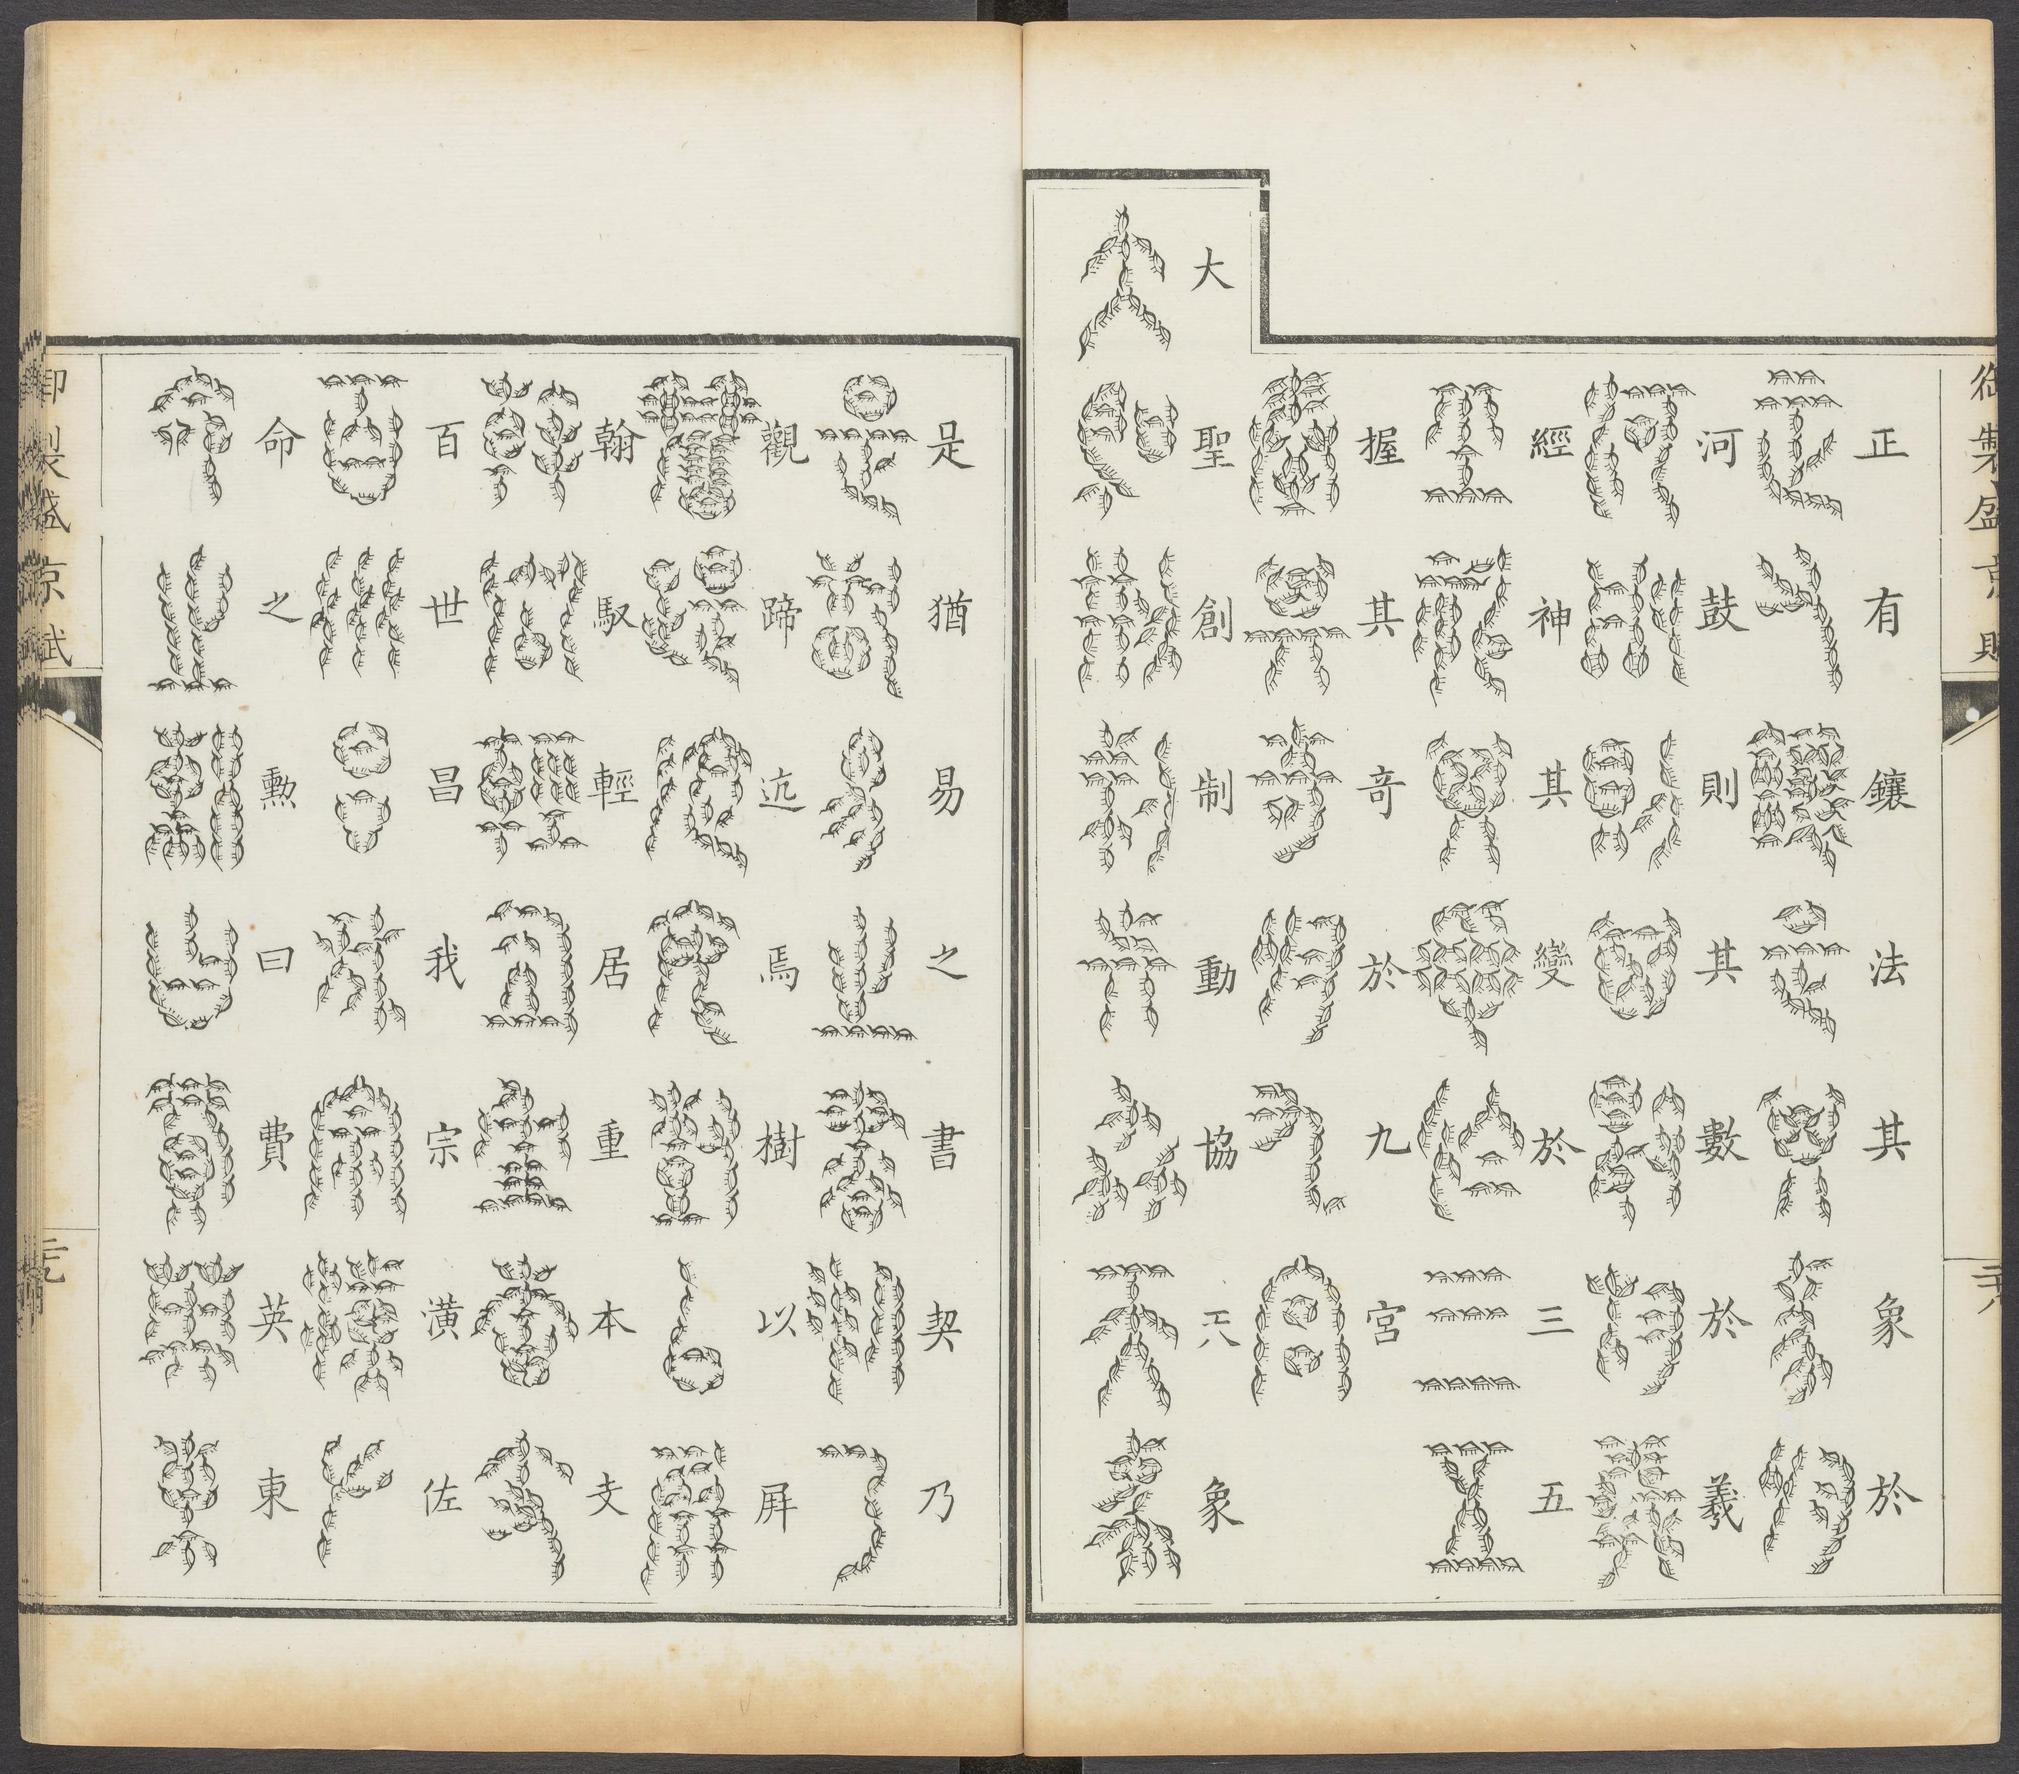 御製盛京賦
正有鑲法其象於
河鼓則其數於羲
經神其變於三五
握其奇於九宮
大聖創制動協兲象
是猶易之書契乃
觀蹄迒焉樹以屏
翰馭輕居重本支
百世昌我宗潢佐
命之勳曰費英東